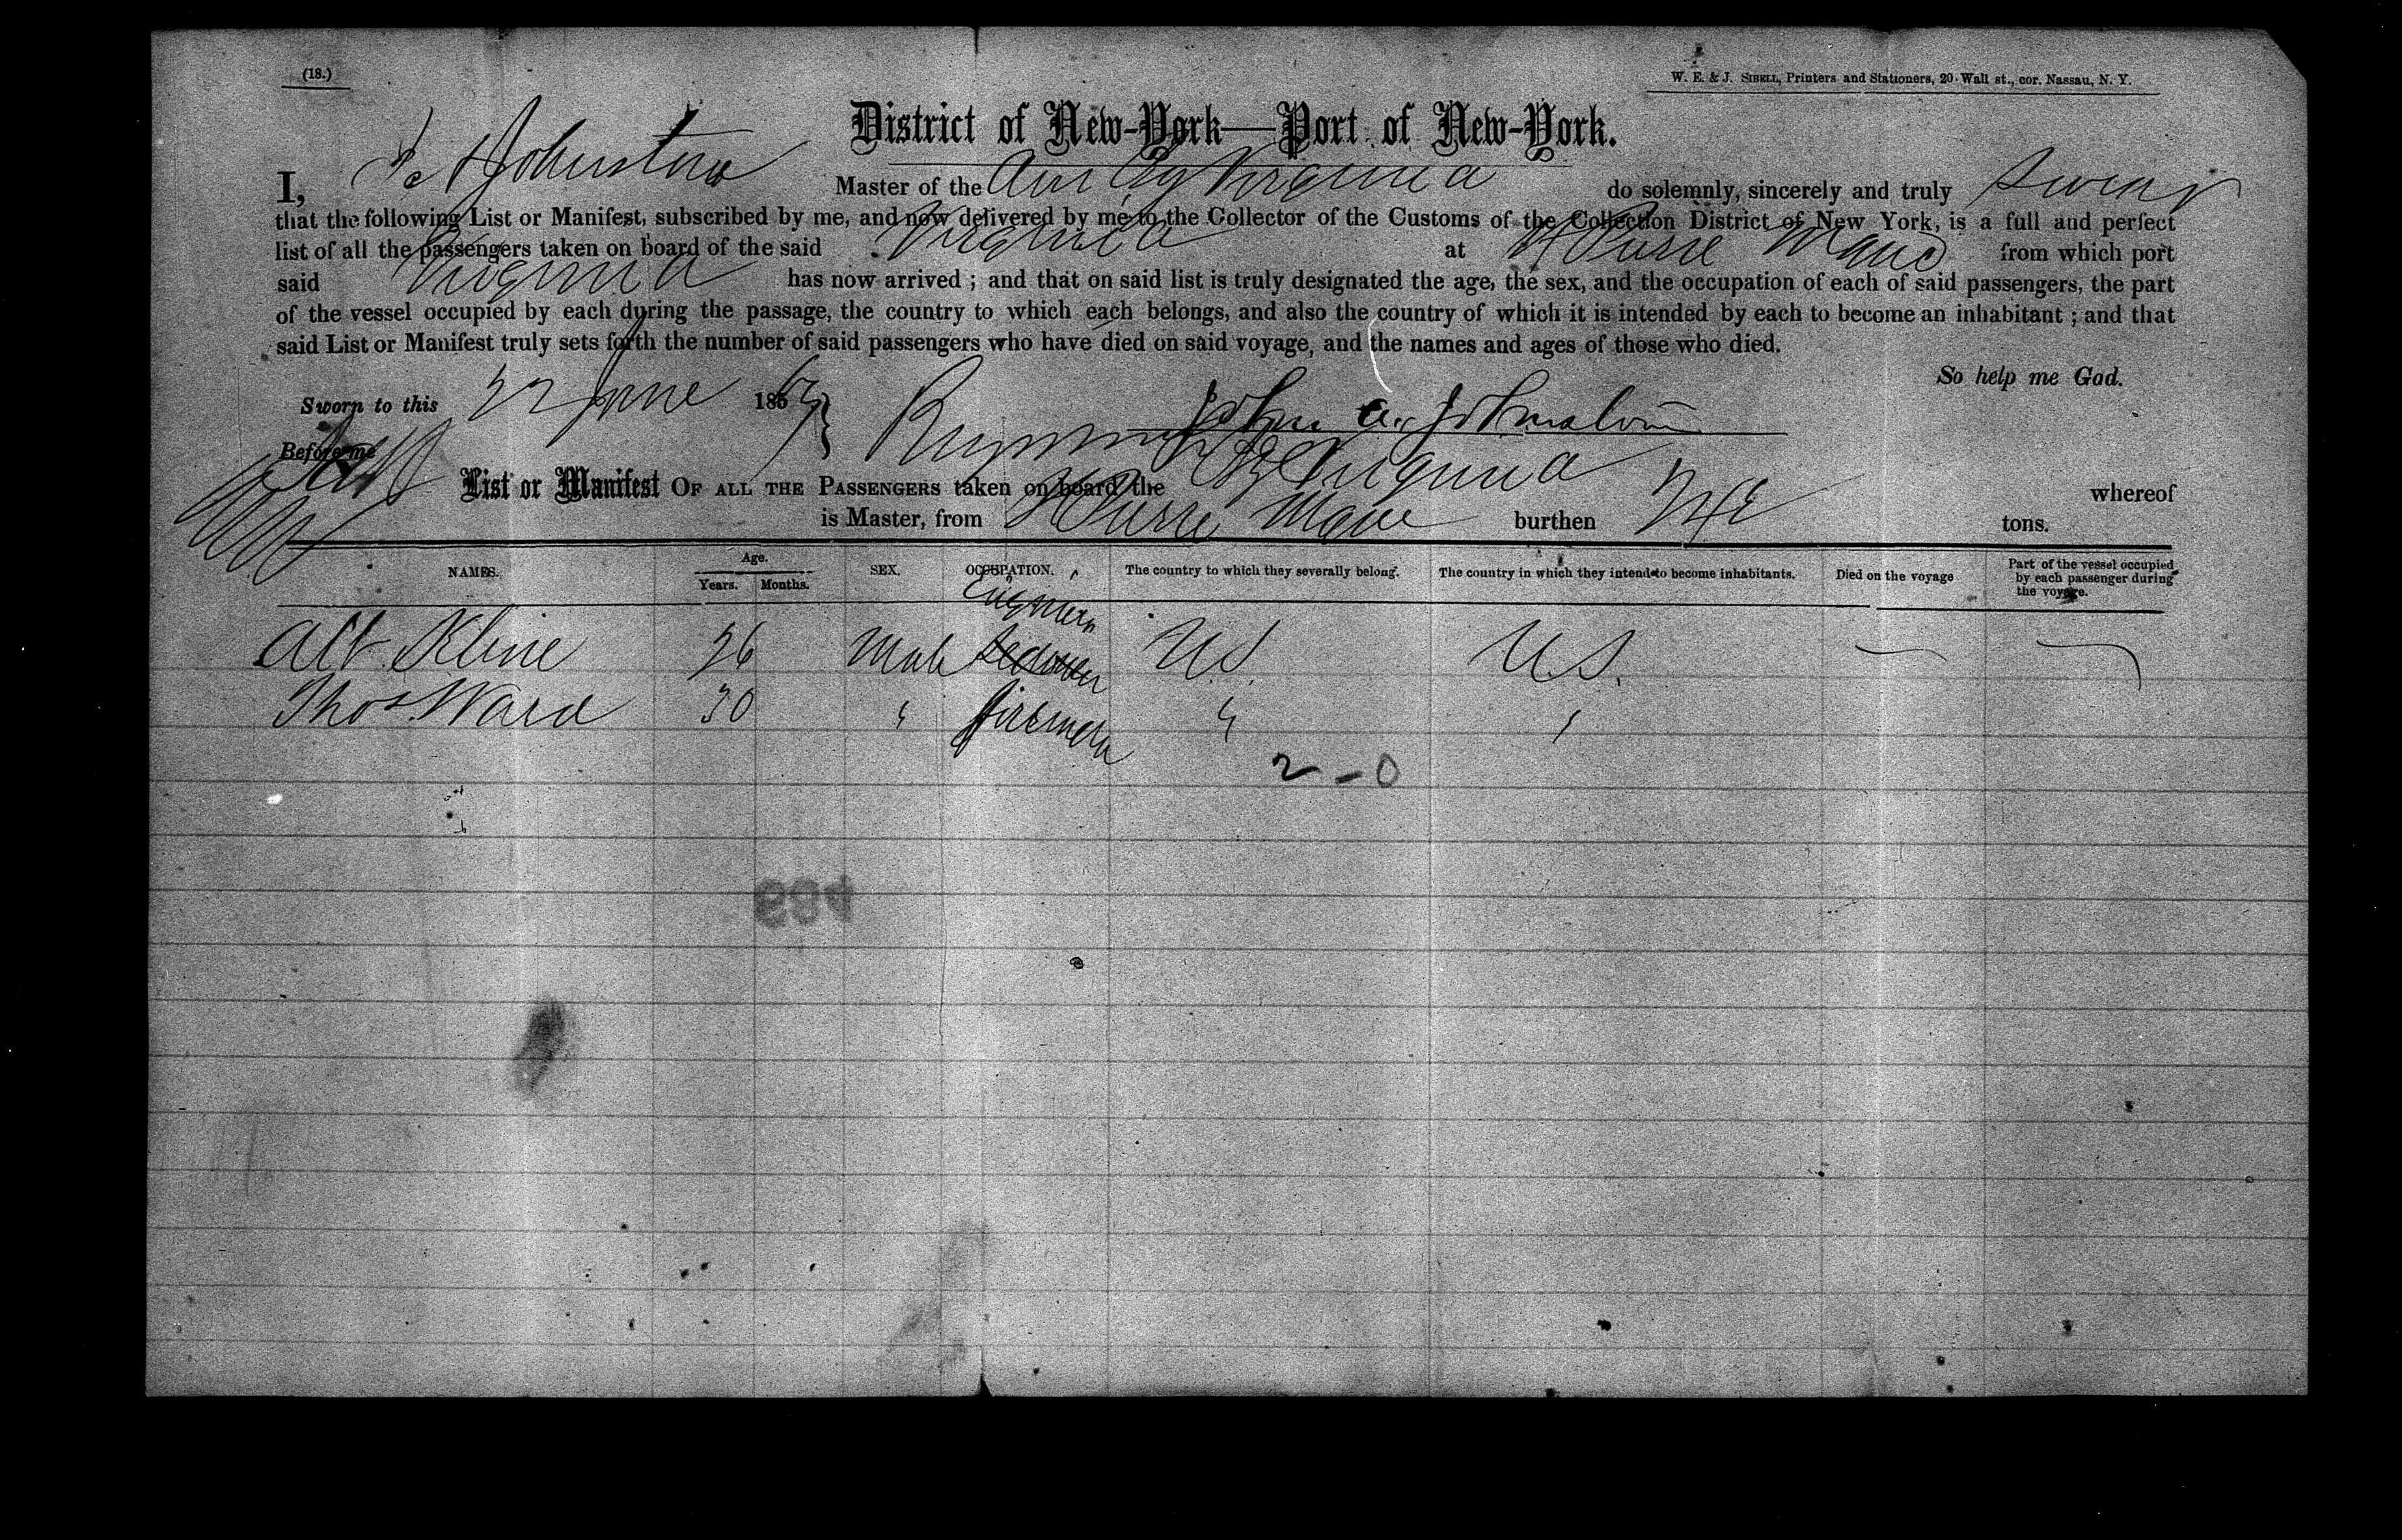 (18.)
W. E. & J. SIBELL, Printers and Stationers, 20 Wall st., cor. Nassau, N. Y.
District of New-York—Port of New-York.
I, Johnston Master of the Virginia do solemnly, sincerely and truly swear
that the following List or Manifest, subscribed by me, and now delivered by me to the Collector of the Customs of the Collection District of New York, is a full and perfect
list of all the passengers taken on board of the said Virginia at St Pierre from which port
said Virginia has now arrived ; and that on said list is truly designated the age, the sex, and the occupation of each of said passengers, the part
of the vessel occupied by each during the passage, the country to which each belongs, and also the country of which it is intended by each to become an inhabitant ; and that
said List or Manifest truly sets forth the number of said passengers who have died on said voyage, and the names and ages of those who died.
So help me God.
Sworn to this 22 June 186
John A. Johnston
Before me
List or Manifest OF ALL THE PASSENGERS taken on board the Virginia whereof
is Master, from St Pierre burthen tons.
NAMES. Age. Years. Months. SEX. OCCUPATION. The country to which they severally belong. The country in which they intend to become inhabitants. Died on the voyage Part of the vessel occupied by each passenger during the voyage.
Engineer
Alb. Kline 26 Male Seaman U.S. U.S.
Thos Ward 30 " firemen " "
2 - 0
694